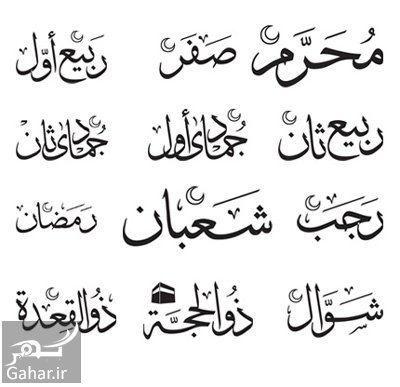 مُحَرَّم صَفَر رَبيع أوّل
رَبيع ثان جُمادى أول جُمادى ثان
رَجَب شَعبان رَمَضان
شَوّال ذُوالحجّة ذُوالقعدة
قهر
Gahar.ir